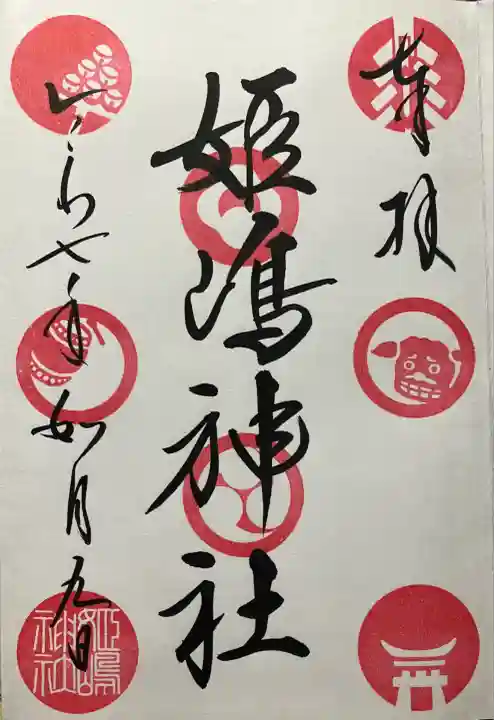 奉拝
姫嶋神社
令和七年如月九日
姫嶋神社